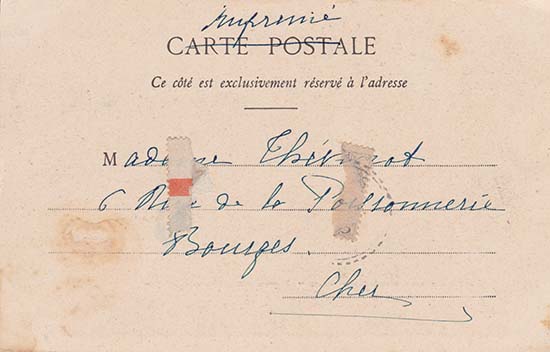 Imprimé
CARTE POSTALE
Ce côté est exclusivement réservé à l'adresse
Madame
6 Rue de la Poissonnerie
Bourges.
Cher